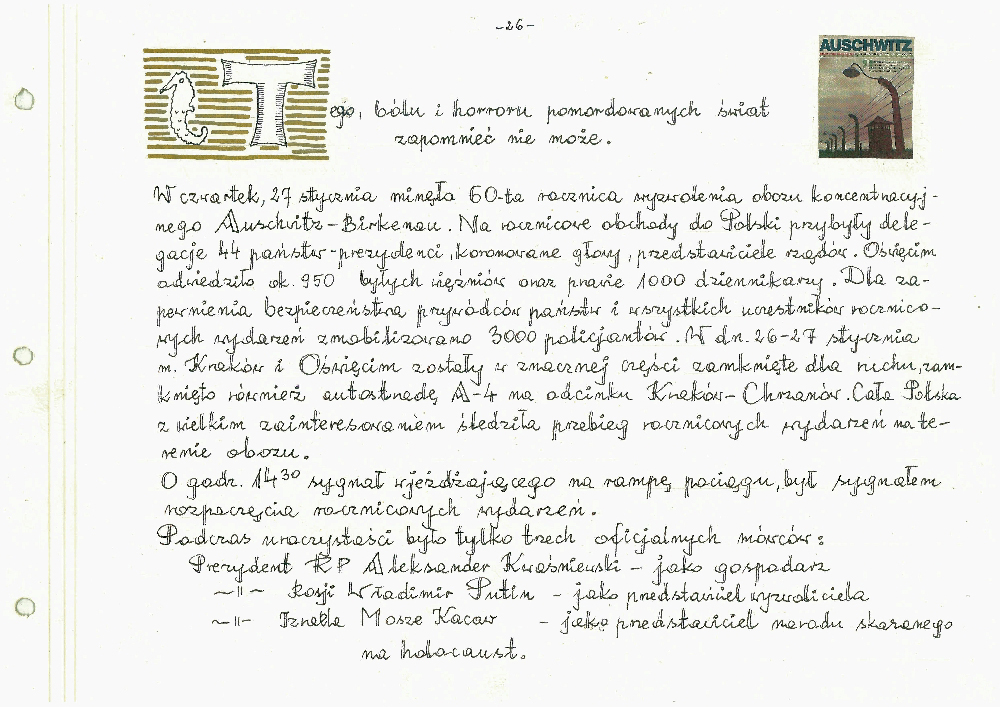 -26-
AUSCHWITZ
Tego, bólu i horroru pomordowanych świat
zapomnieć nie może.
W czwartek, 27 stycznia minęła 60-ta rocznica wyzwolenia obozu koncentracyj-
nego Auschwitz-Birkenau. Na rocznicowe obchody do Polski przybyły dele-
gacje 44 państw-prezydenci, koronowane głowy, przedstawiciele rządów. Oświęcim
odwiedziło ok. 950 byłych więźniów oraz prawie 1000 dziennikarzy. Dla za-
pewnienia bezpieczeństwa przywódców państw i wszystkich uczestników rocznico-
wych wydarzeń zmobilizowano 3000 policjantów. W dn. 26-27 stycznia
m. Kraków i Oświęcim zostały w znacznej części zamknięte dla ruchu, zam-
knięto również autostradę A-4 na odcinku Kraków-Chrzanów. Cała Polska
z wielkim zainteresowaniem śledziła przebieg rocznicowych wydarzeń na te-
renie obozu.
O godz. 14³⁰ sygnał wjeżdżającego na rampę pociągu, był sygnałem
rozpoczęcia rocznicowych wydarzeń.
Podczas uroczystości było tylko trzech oficjalnych mówców:
Prezydent RP Aleksander Kwaśniewski - jako gospodarz
~II~ Rosji Władimir Putin - jako przedstawiciel wyzwoliciela
~II~ Izraela Mosze Kacaw - jako przedstawiciel narodu skazanego
na holocaust.